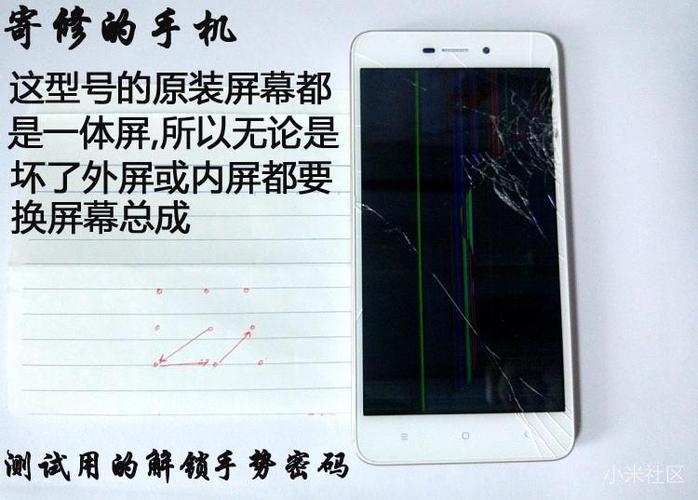 寄修的手机
这型号的原装屏幕都
是一体屏,所以无论是
坏了外屏或内屏都要
换屏幕总成
测试用的解锁手势密码
小米社区